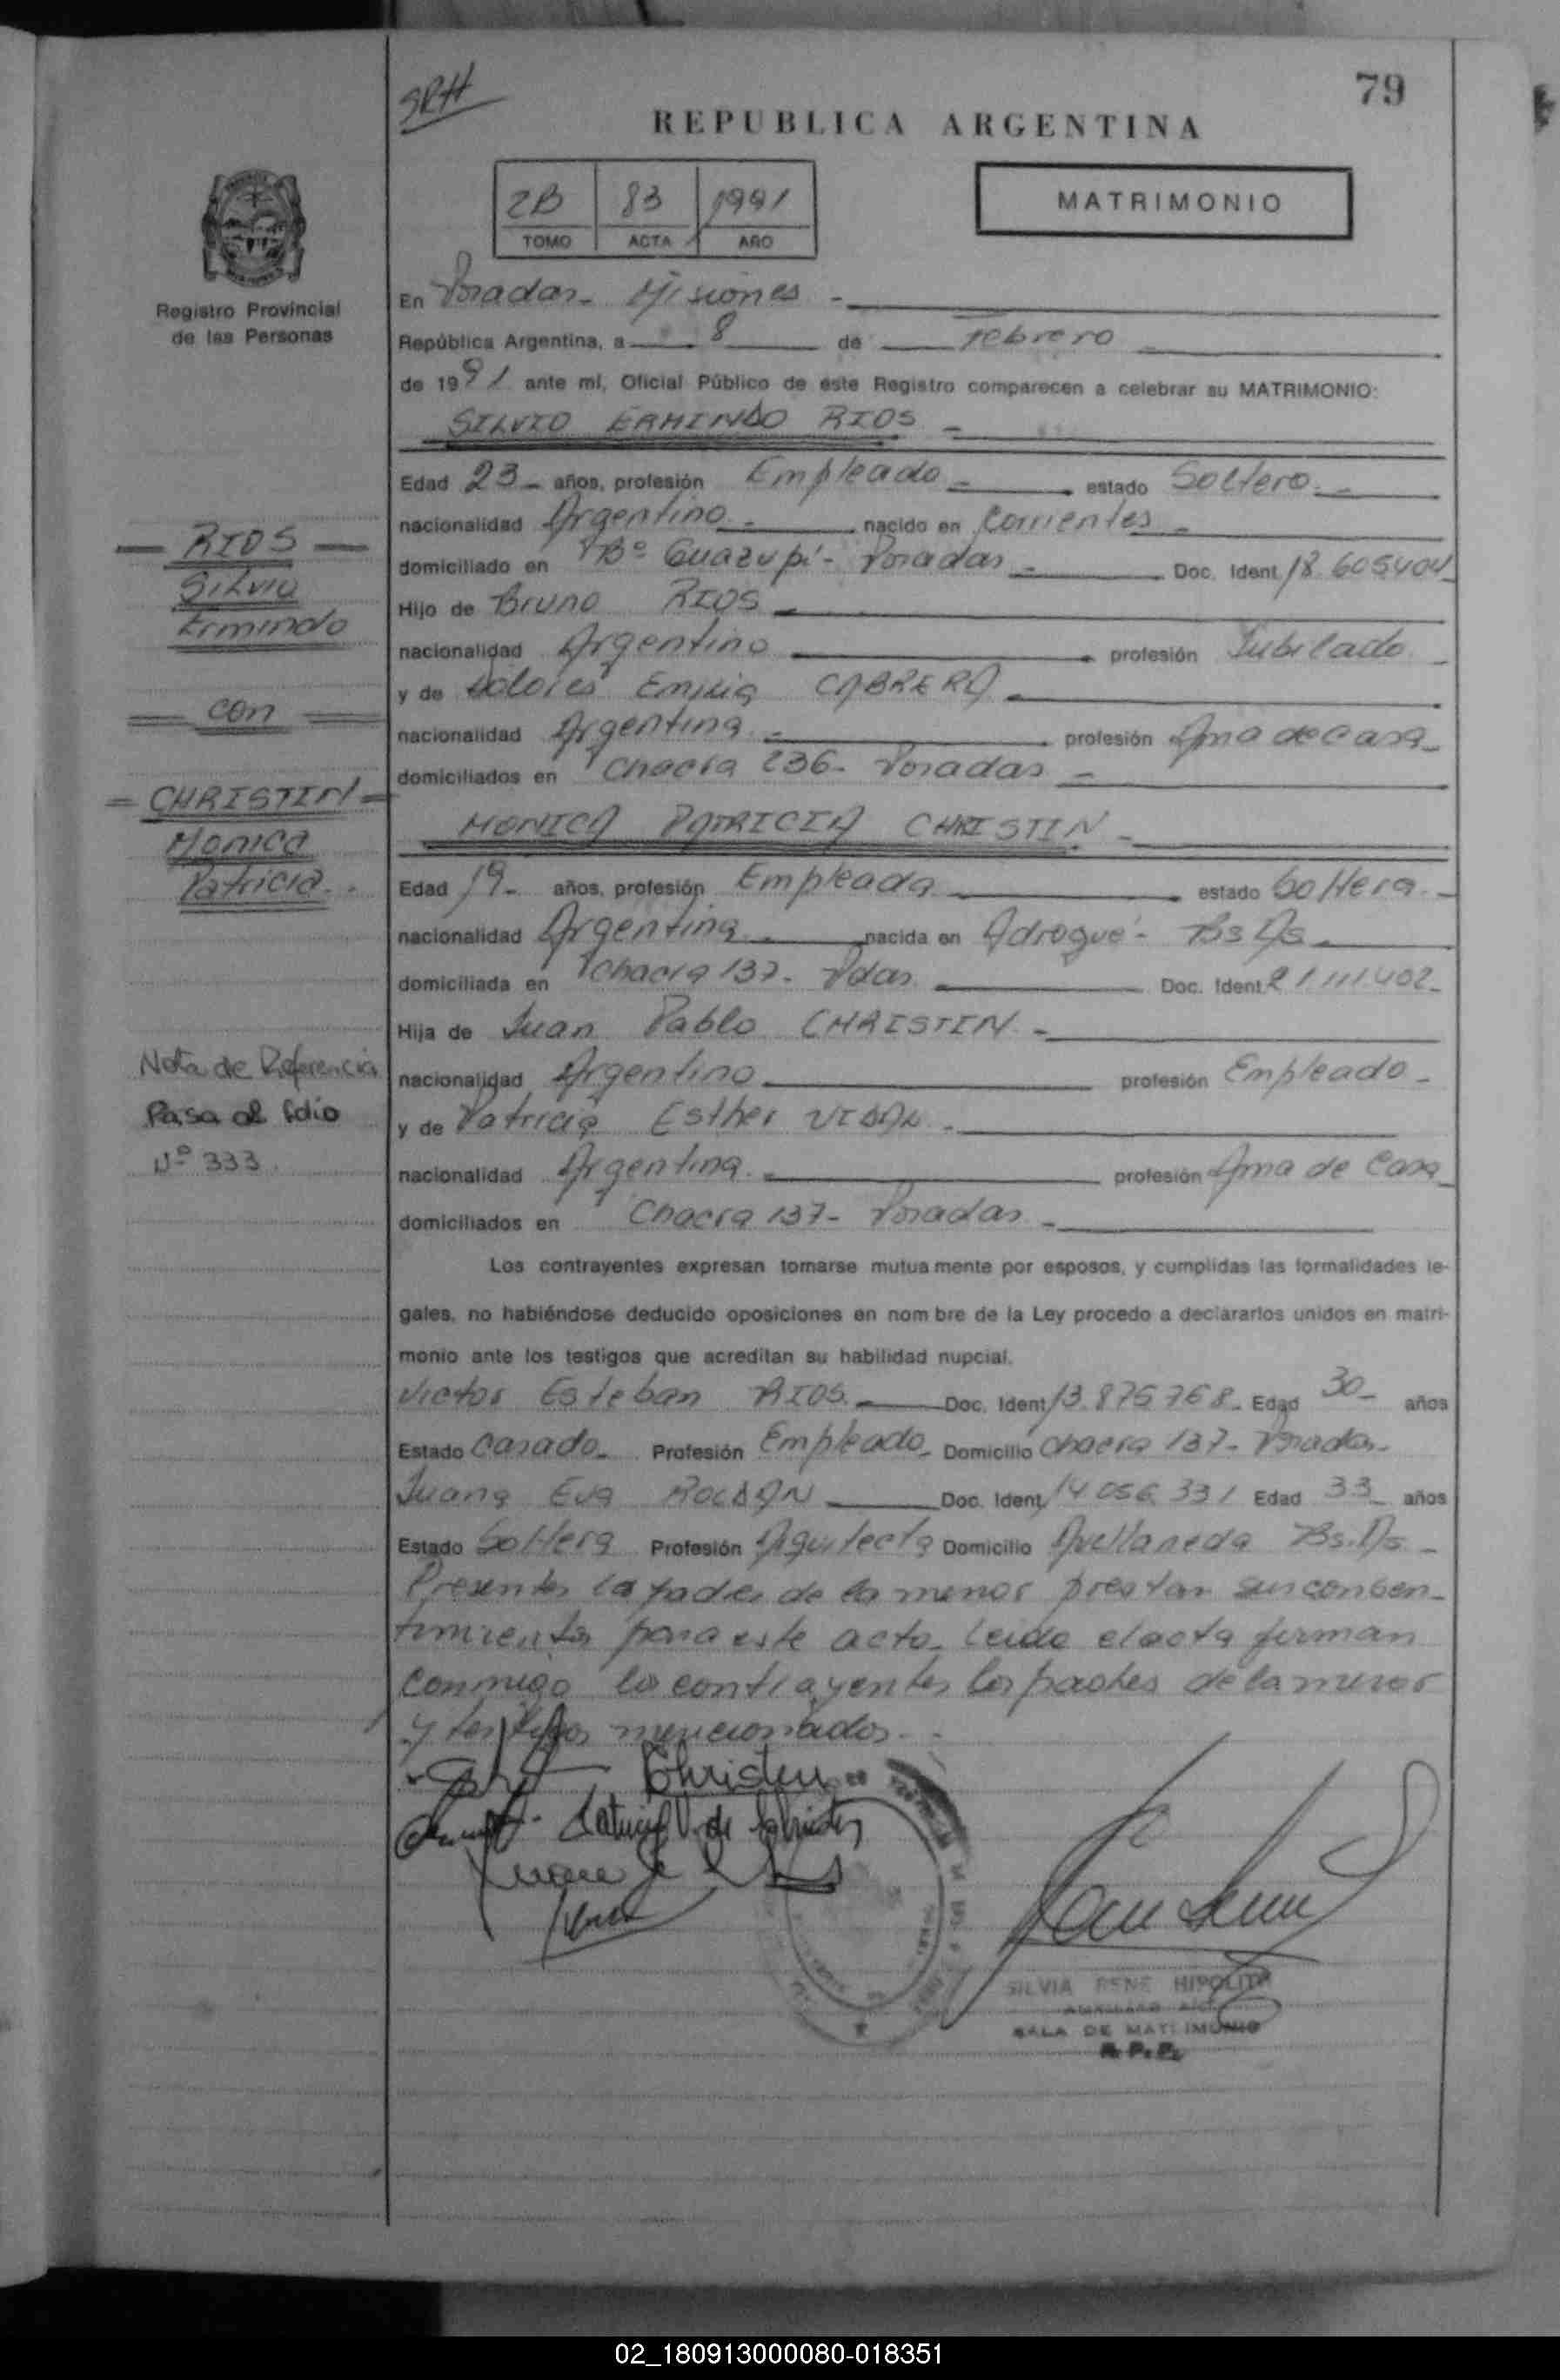 79
SRH
REPUBLICA ARGENTINA
2B 83 1991
TOMO ACTA AÑO
MATRIMONIO
Registro Provincial
de las Personas
En Posadas - Misiones -
República Argentina, a 8 de Febrero
de 1991 ante mí, Oficial Público de este Registro comparecen a celebrar su MATRIMONIO:
SILVIO ERMINDO RIOS -
Edad 23 - años, profesión Empleado - estado Soltero -
nacionalidad Argentino - nacido en Corrientes -
domiciliado en Bº Guazupi - Posadas - Doc. Ident. 18.605404
Hijo de Bruno RIOS
nacionalidad Argentino profesión Jubilado -
y de Dolores Emilia CABRERA
nacionalidad Argentina - profesión Ama de Casa -
domiciliados en Chacra 236 - Posadas -
MONICA PATRICIA CHRISTIN -
Edad 19 - años, profesión Empleada estado Soltera -
nacionalidad Argentina - nacida en Adrogué - Bs As
domiciliada en Chacra 137 - Pdas. Doc. Ident. 21.111.402 -
Hija de Juan Pablo CHRISTIN -
nacionalidad Argentino profesión Empleado -
y de Patricia Esther VIDAL -
nacionalidad Argentina - profesión Ama de Casa
domiciliados en Chacra 137 - Posadas -
Los contrayentes expresan tomarse mutuamente por esposos, y cumplidas las formalidades le-
gales, no habiéndose deducido oposiciones en nombre de la Ley procedo a declararlos unidos en matri-
monio ante los testigos que acreditan su habilidad nupcial.
Victor Esteban RIOS - Doc. Ident. 13.875768 - Edad 30 - años
Estado Casado - Profesión Empleado - Domicilio Chacra 137 - Posadas -
Juana Eva ROLDAN Doc. Ident. 14056331 Edad 33 años
Estado Soltera Profesión Arquitecta Domicilio Avellaneda Bs. As -
Presentes los padres de la menor prestan su consen-
timiento para este acto. Leida el acta firman
conmigo los contrayentes los padres de la menor
y testigos mencionados -
Christin
Patricia V. de Christin
SILVIA RENE HIPOLITO
SALA DE MATRIMONIO
R. P. P.
RIOS
Silvio
Ermindo
con
CHRISTIN
Monica
Patricia
Nota de Referencia
Pasa al folio
Nº 333
02_180913000080-018351